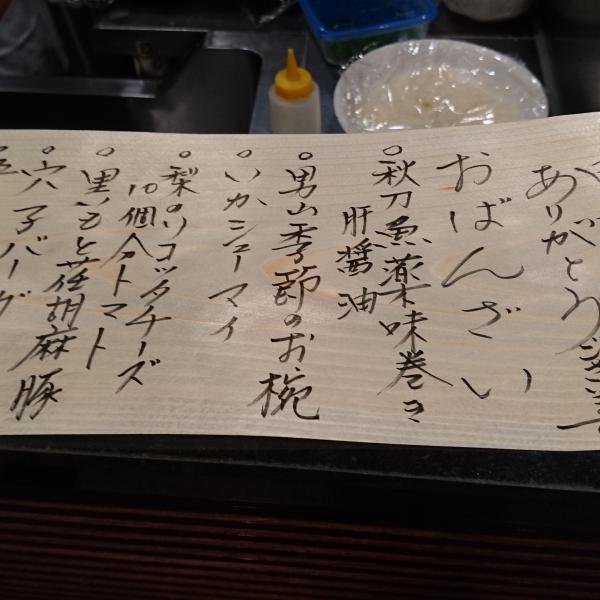 ありがとう
おばんざい
○秋刀魚薬味巻き
肝醤油
○男山季節のお椀
○いかシューマイ
○梨のリコッタチーズ
10個分トマト
○黒いもと荏胡麻豚
○穴子バーグ